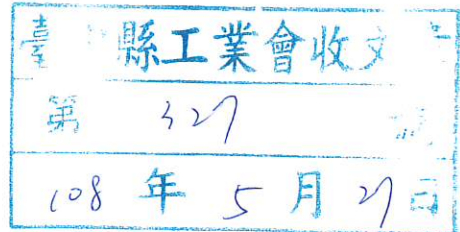 臺 縣工業會收文
第 327 號
108 年 5 月 27 日